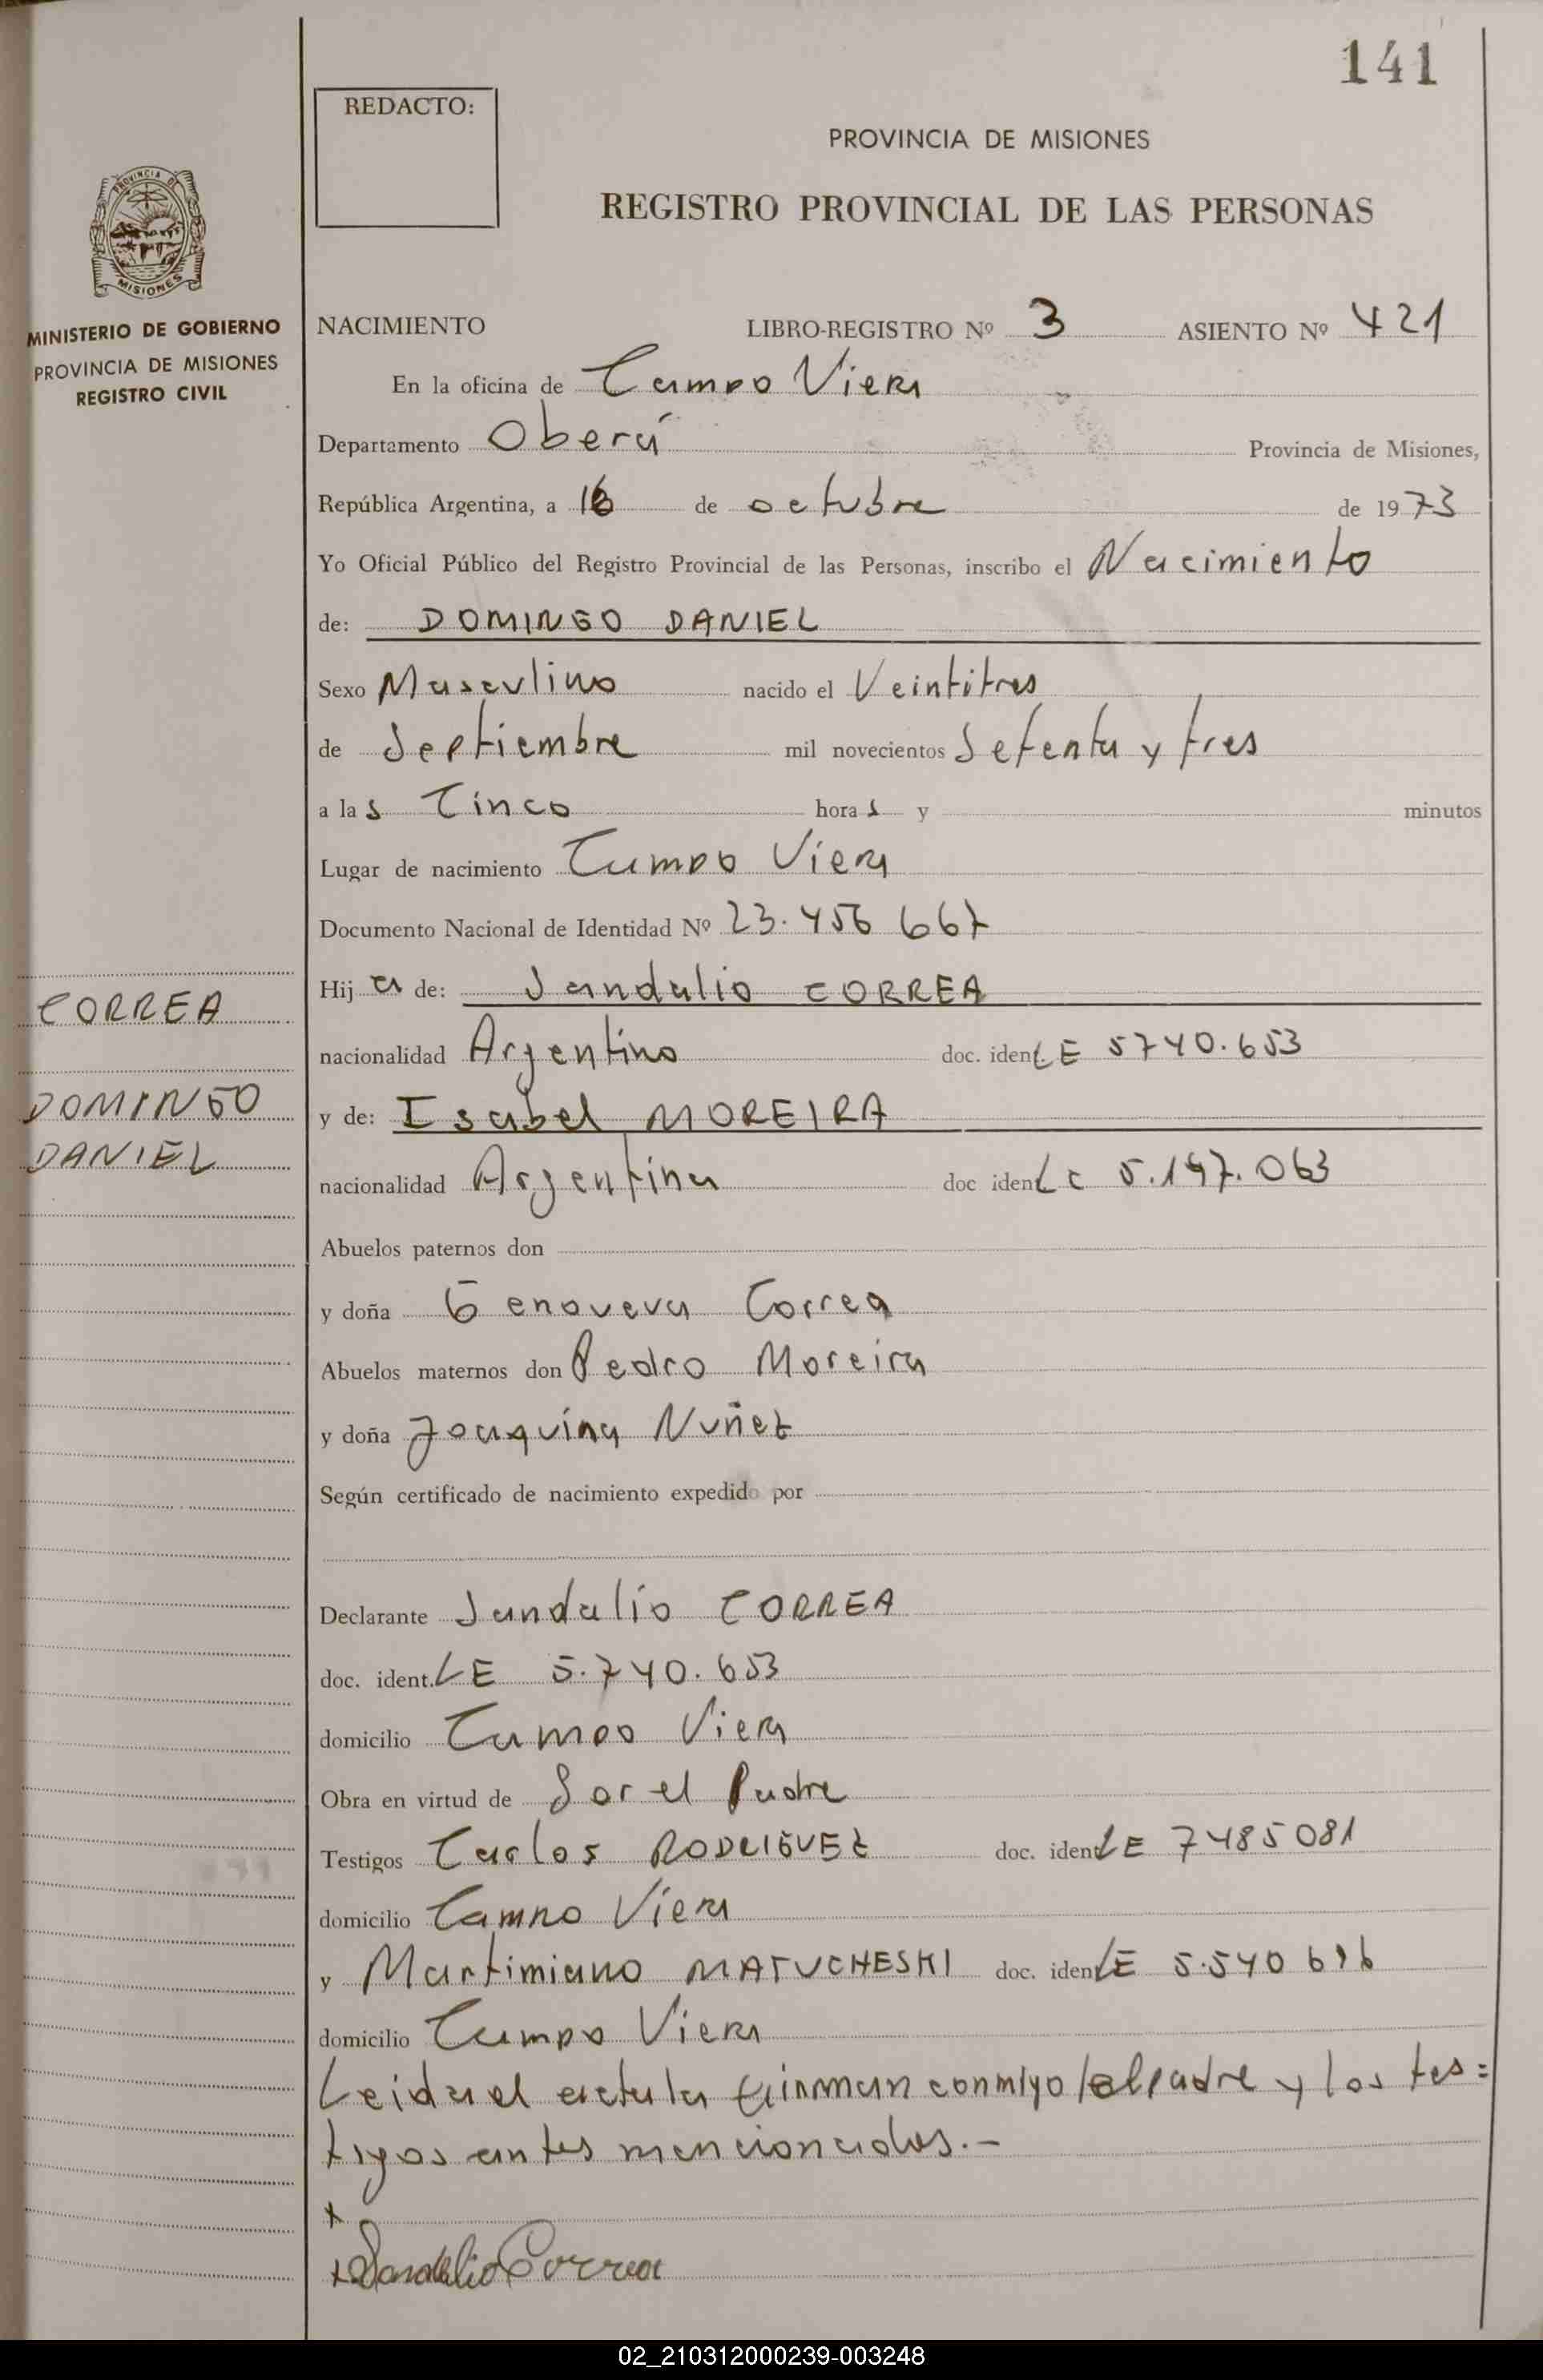 141
REDACTO:
PROVINCIA DE MISIONES
REGISTRO PROVINCIAL DE LAS PERSONAS
PROVINCIA DE
MISIONES
MINISTERIO DE GOBIERNO
PROVINCIA DE MISIONES
REGISTRO CIVIL
NACIMIENTO LIBRO-REGISTRO Nº 3 ASIENTO Nº 421
En la oficina de Campo Viera
Departamento Oberá Provincia de Misiones,
República Argentina, a 16 de octubre de 1973
Yo Oficial Público del Registro Provincial de las Personas, inscribo el Nacimiento
de: DOMINGO DANIEL
Sexo Masculino nacido el Veintitres
de Septiembre mil novecientos Setenta y tres
a las Cinco horas y minutos
Lugar de nacimiento Campo Viera
Documento Nacional de Identidad Nº 23.456 667
Hija de: Sandalio CORREA
nacionalidad Argentino doc. ident LE 5740.653
y de: Isabel MOREIRA
nacionalidad Argentina doc ident LC 5.197.063
Abuelos paternos don
y doña Genoveva Correa
Abuelos maternos don Pedro Moreira
y doña Joaquina Nuñez
Según certificado de nacimiento expedido por
Declarante Sandalio CORREA
doc. ident. LE 5.740.653
domicilio Campo Viera
Obra en virtud de Ser el Padre
Testigos Carlos RODRIGUEZ doc. ident LE 7485081
domicilio Campo Viera
y Martimiano MATUCHESKI doc. ident LE 5.540
domicilio Campo Viera
Leida el acta la firman conmigo el padre y los tes=
tigos antes mencionados.-
x
x Sandalio Correa
CORREA
DOMINGO
DANIEL
02_210312000239-003248